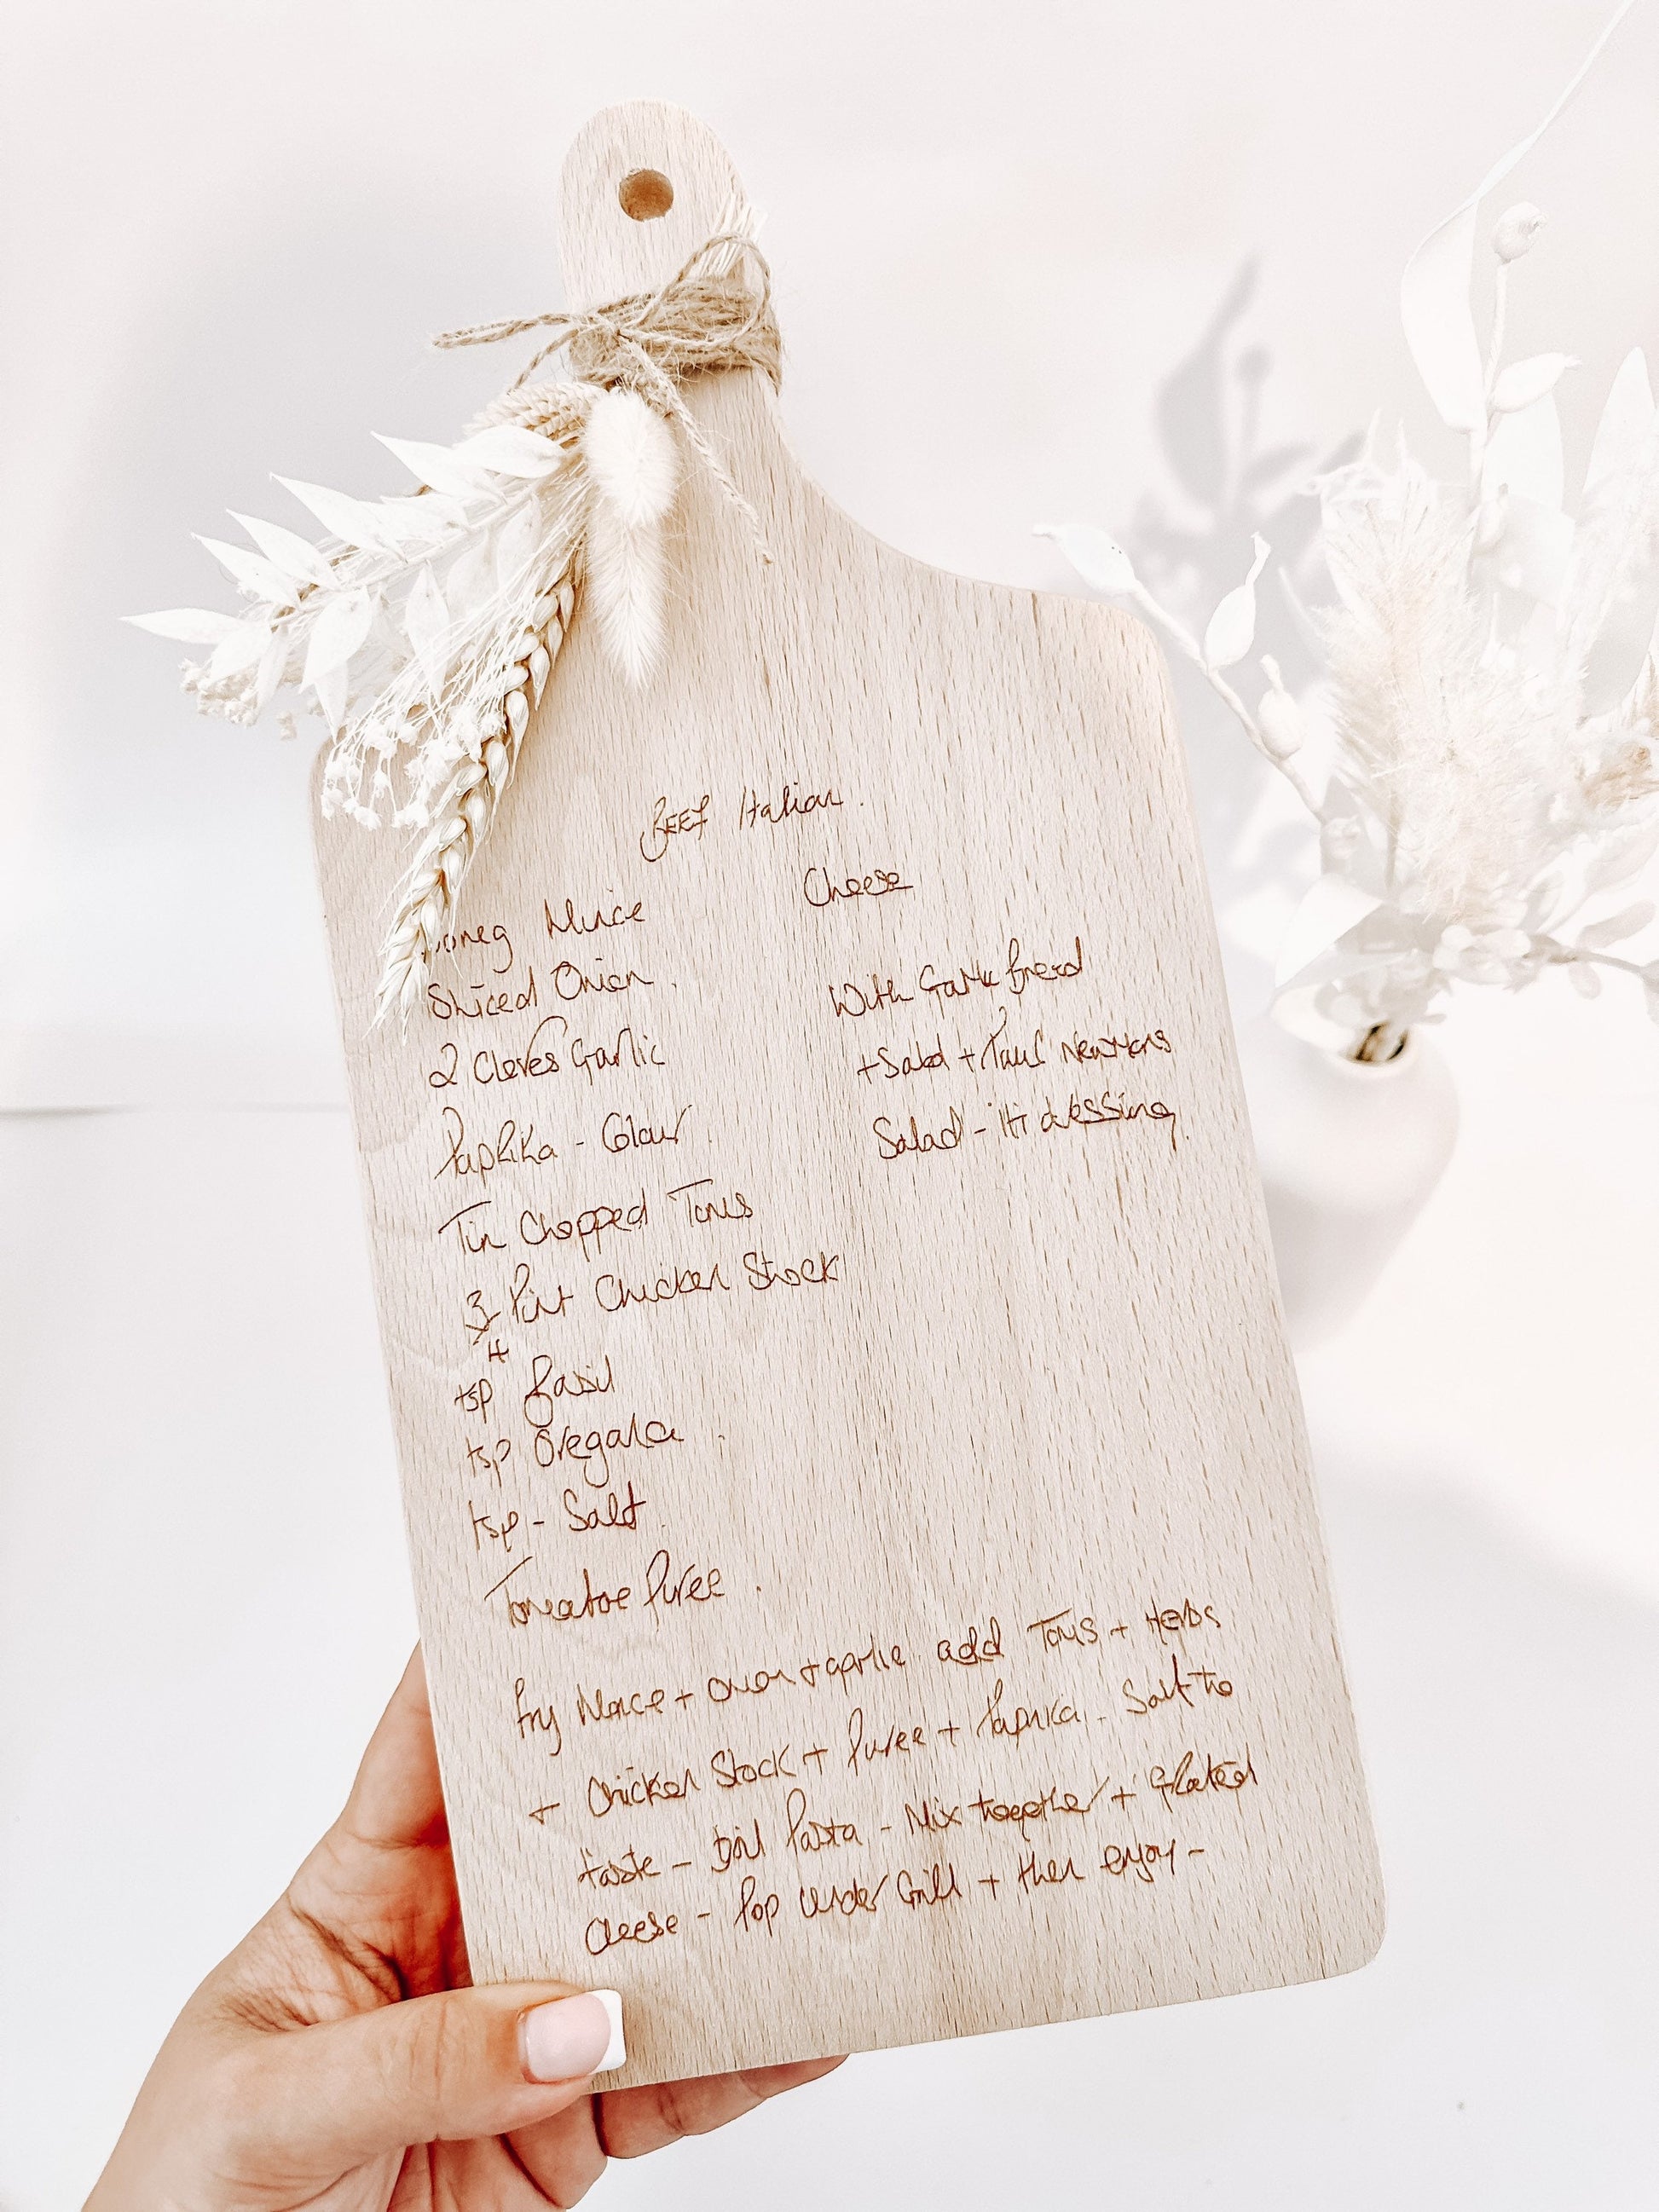 BEEF Italian.
Mince
Sliced Onion.
2 Cloves Garlic
Paprika - Colour.
Tin Chopped Toms
3/4 Pint Chicken Stock
tsp Basil
tsp Oregano.
tsp - Salt.
Tomatoe Puree.
Cheese
With Garlic Bread
+ Salad + Paul Newmans
Salad - iti dressing.
Fry Mince + onion + garlic. add Toms + Herbs
+ Chicken Stock + Puree + Paprika. Salt to
taste - Boil Pasta - Mix together + Grated
Cheese - Pop Under Grill + then enjoy -